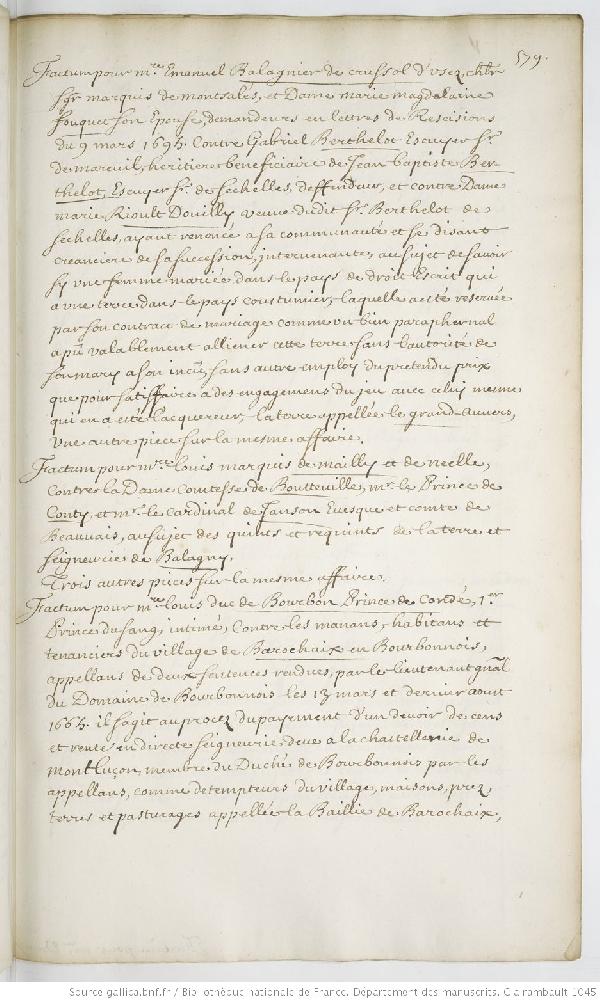 579.
Factum pour m.re Emanuel Balagnier de crussol d'usez, chlr
sgr marquis de montsales, et Dame marie magdelaine
fouquet son Epouse, demandeurs en lettres de Rescisions
du 9 mars 1695. Contre Gabriel Berthelot Escuyer sr.
de mareuil, heritier beneficiaire de Jean baptiste Ber-
thelot, Escuyer sr. de sechelles, deffendeur, et contre Dame
marie Rioult Douilly veuve dudit sr. Berthelot de
sechelles, ayant renoncé a sa communauté et se disant
creanciere de sa succession, intervenante, au sujet de sçavoir
sy une femme mariée dans le pays de droit Escrit qui
a une terre dans le pays coustumier, laquelle a esté reservée
par son contract de mariage comme un bien paraphernal
a pû valablement alliener cette terre sans l'autorité de
son mary a son inçû, sans autre employ du pretendu prix
que pour satisfaire a des engagemens du jeu avec celuy mesme
qui en a esté l'acquereur, la terre appellée le grand-Auvers,
Une autre piece sur la mesme affaire.
Factum pour m.re louis marquis de mailly et de neelle,
Contre la Dame Comtesse de Boutteville, mr. le Prince de
Conty, et mr. le Cardinal de Janson Evesque et comte de
Beauvais, au sujet des quints et requints de la terre et
seigneurie de Balagny.
Trois autres pieces sur la mesme affaire.
Factum pour m.re louis duc de Bourbon Prince de Condé, 1.er
Prince du sang, intimé, Contre les manans, habitans et
tenanciers du village de Barochaix en Bourbonnois,
appellans de deux sentences rendues, par le lieutenant gnal
du Domaine de Bourbonnois les 13 mars et dernier aout
1665. il s'agit au procez du payement d'un devoir de cens
et rente en directe seigneurie, deue a la chastellenie de
montluçon, membre du Duché de Bourbonnois par les
appellans, comme detempteurs du village, maisons, prez,
terres et pasturages appellée la Baillie de Barochaix,
Source gallica.bnf.fr / Bibliothèque nationale de France. Département des manuscrits. Clairambault 1045